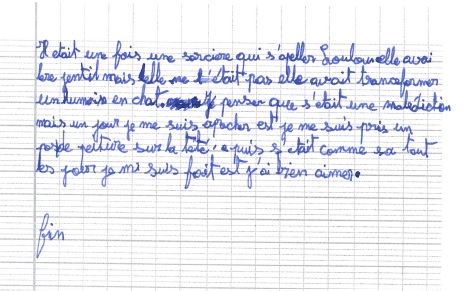 Il etait une fois une sorciere qui s'apeller Louloun elle avai
l'ere jentil mais elle ne l'était pas elle avait tranceformer
un humain en chat. Je penser que s'était une malédiction
mais un jour je me suis aprocher est je me suis pris un
peinture sur la tête. puis s'était comme sa tout
les jour je me suis fait est j'ai bien aimer.
fin